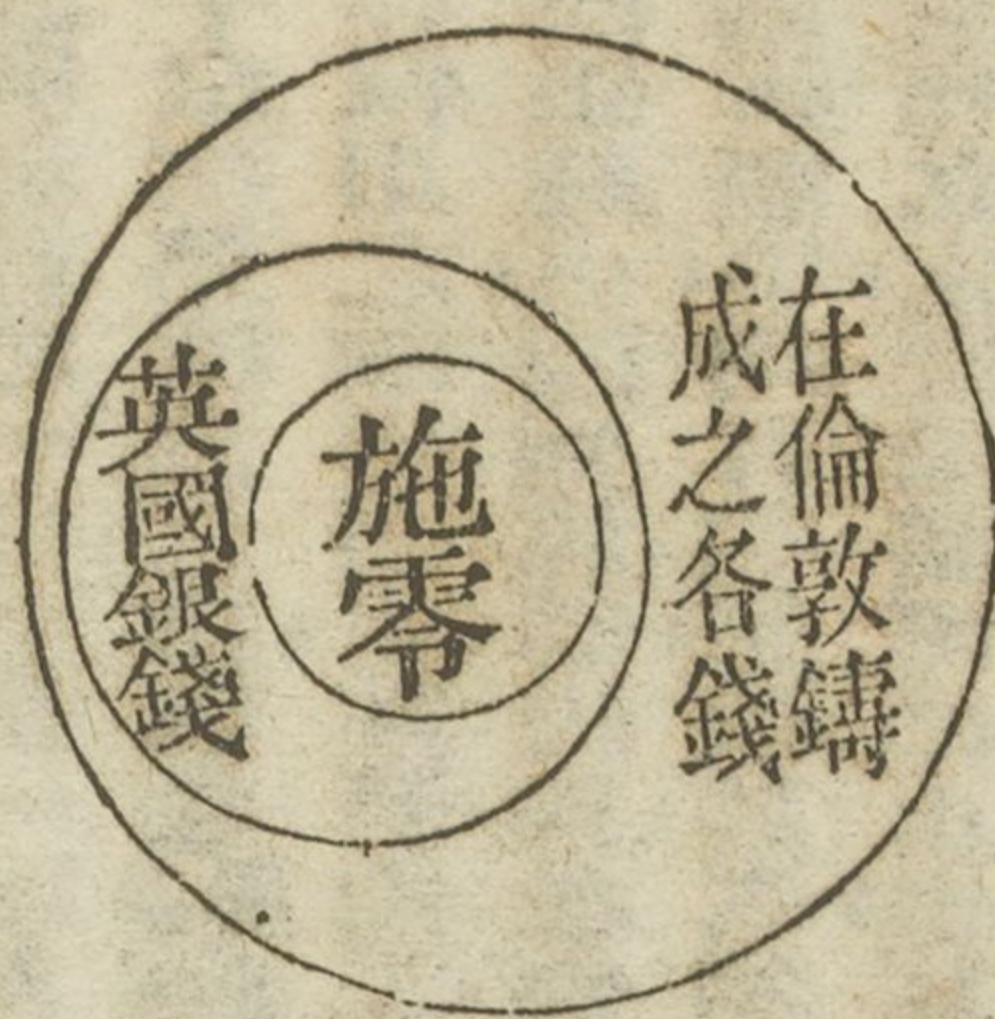 在倫敦鑄
成之各錢
施零
英國銀錢